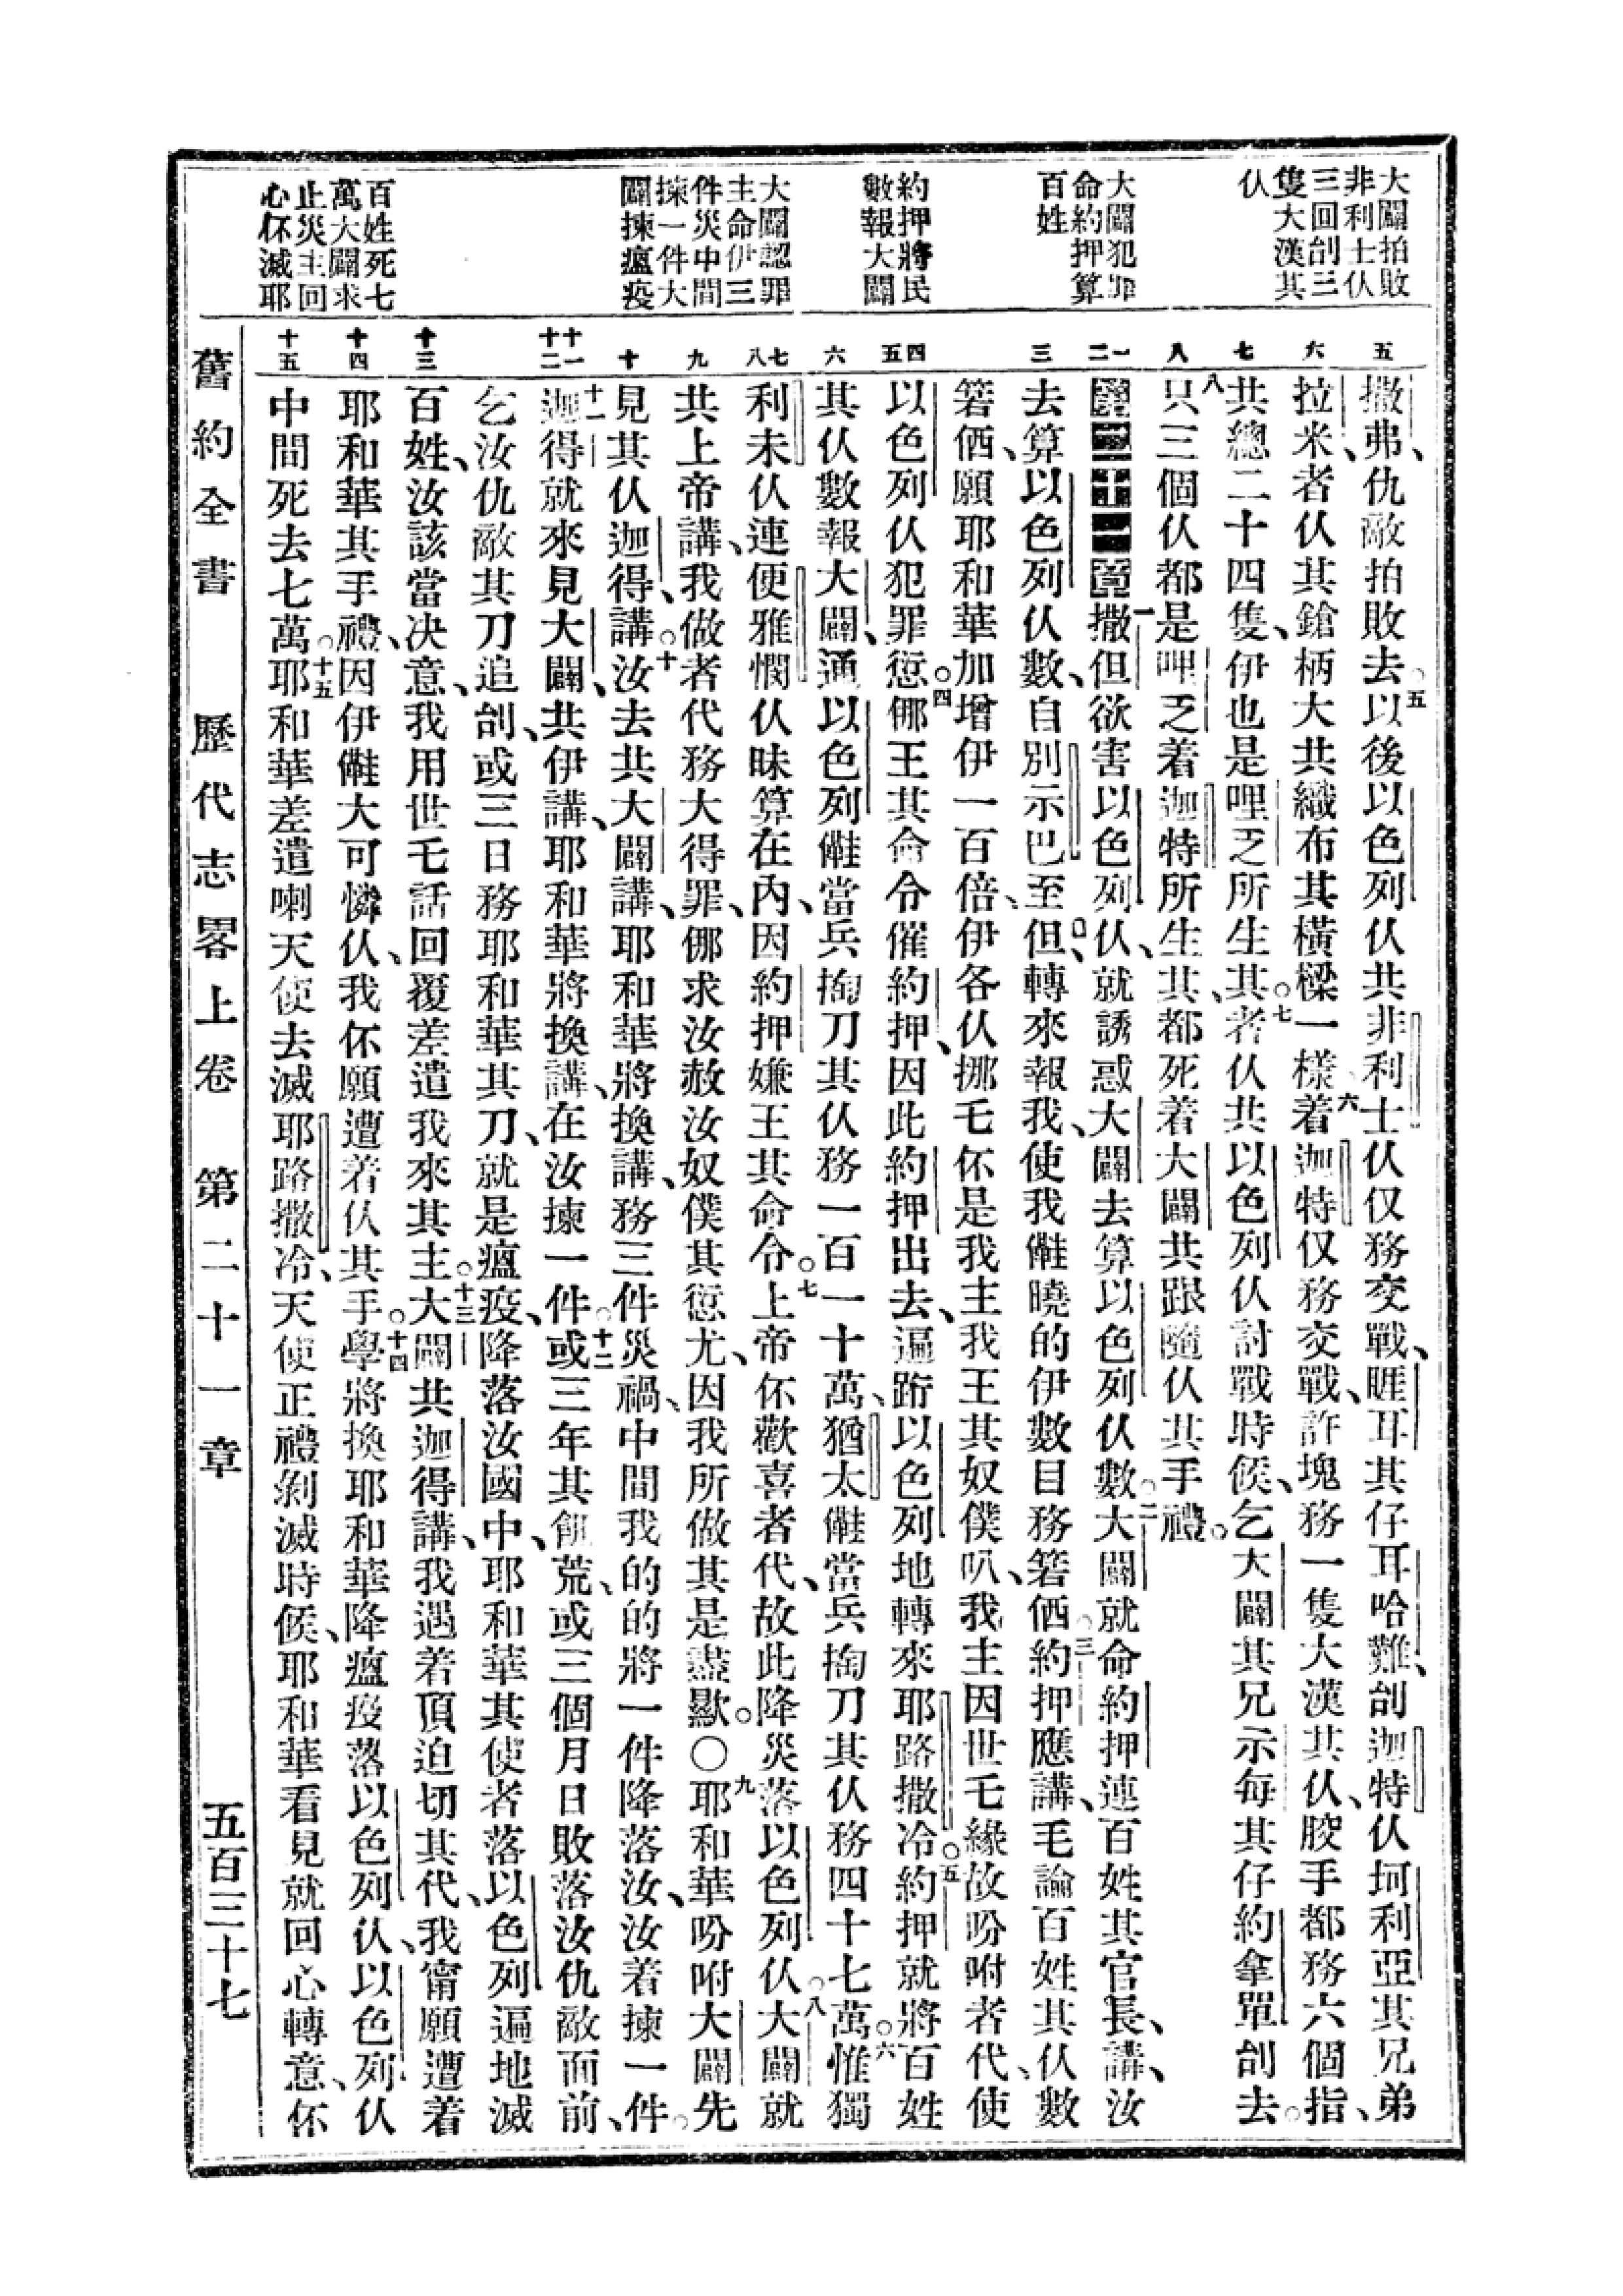 大闢拍敗
非利士仈
三回刣三
隻大漢其
仈
大闢犯罪
命約押算
百姓
約押將民
數報大闢
大闢認罪
主命伊三
件災中間
揀一件大
闢揀瘟疫
百姓死七
萬大闢求
止災主回
心伓滅耶
五
六
七
八
一
二
三
四
五
六
七
八
九
十
十一
十二
十三
十四
十五
撒弗、仇敵拍敗去。五以後以色列仈共非利士仈仅務交戰、睚耳其仔耳哈難、刣迦特仈坷利亞其兄弟
拉米、者仈其鎗柄大共織布其橫樑一樣、六着迦特仅務交戰、許塊務一隻大漢其仈、骹手都務六個指、
共總二十四隻、伊也是哩乏所生其。七者仈共以色列仈討戰時候、乞大闢其兄示每其仔約拿單刣去。
八只三個仈都是呷乏着迦特所生其、都死着大闢共跟隨仈其手禮。
第二十一章 一撒但欲害以色列仈、就誘惑大闢去算以色列仈數。二大闢就命約押連百姓其官長、講、汝
去算以色列仈數、自別示巴至但、轉來報我、使我儺曉的伊數目務箬価。三約押應講、毛論百姓其仈數
箬価、願耶和華加增伊一百倍、伊各仈挪毛伓是我主我王其奴僕叭、我主因世毛緣故吩咐者代、使
以色列仈犯罪愆。四㑚王其命令催約押、因此約押出去、遍跡以色列地轉來耶路撒冷。五約押就將百姓
其仈數報大闢、通以色列儺當兵掏刀其仈務一百一十萬、猶太儺當兵掏刀其仈務四十七萬。六惟獨
利未仈連便雅憫仈昧算在內、因約押嫌王其命令。七上帝伓歡喜者代、故此降災落以色列仈。八大闢就
共上帝講、我做者代務大得罪、㑚求汝赦汝奴僕其愆尤、因我所做其是盡歞。〇九耶和華吩咐大闢先
見其仈迦得、講。十汝去共大闢講、耶和華將換講、務三件災禍、中間我的的將一件降落汝、汝着揀一件。
十一迦得就來見大闢、共伊講、耶和華將換講、在汝揀一件。十二或三年其飢荒、或三個月日敗落汝仇敵面前、
乞汝仇敵其刀追刣、或三日務耶和華其刀、就是瘟疫、降落汝國中、耶和華其使者落以色列遍地滅
百姓、汝該當决意、我用世乇話回覆差遣我來其主。十三大闢共迦得講、我遇着頂迫切其代、我甯願遭着
耶和華其手禮、因伊儺大可憐仈、我伓願遭着仈其手學。十四將換耶和華降瘟疫落以色列仈、以色列仈
中間死去七萬。十五耶和華差遣喇天使去滅耶路撒冷、天使正禮剿滅時候、耶和華看見就回心轉意、伓
舊約全書　歷代志畧上卷　第二十一章　五百三十七